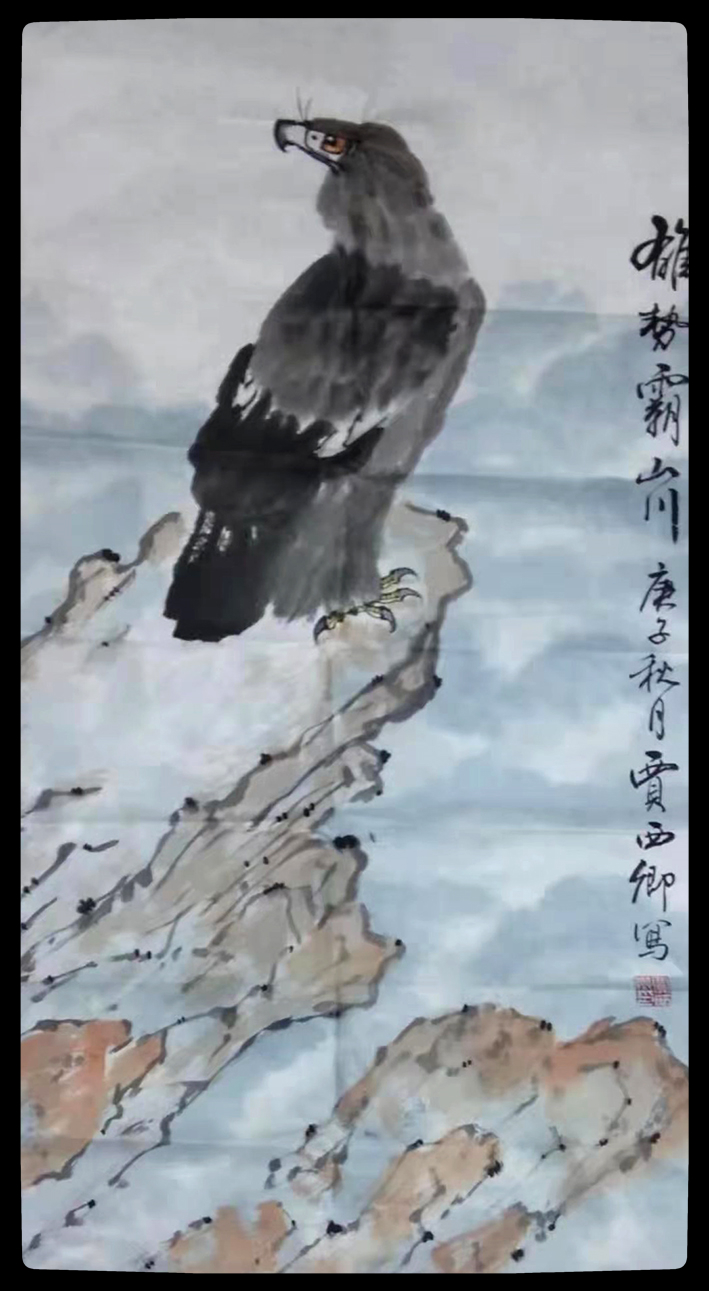 雄势霸山川 庚子秋月贾西卿写